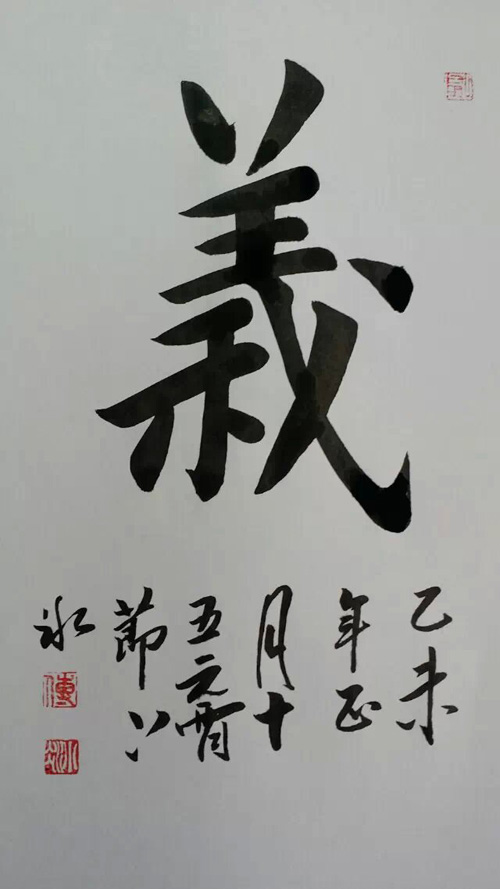 義
乙未
年正
月十
五元宵
節
冰
傅